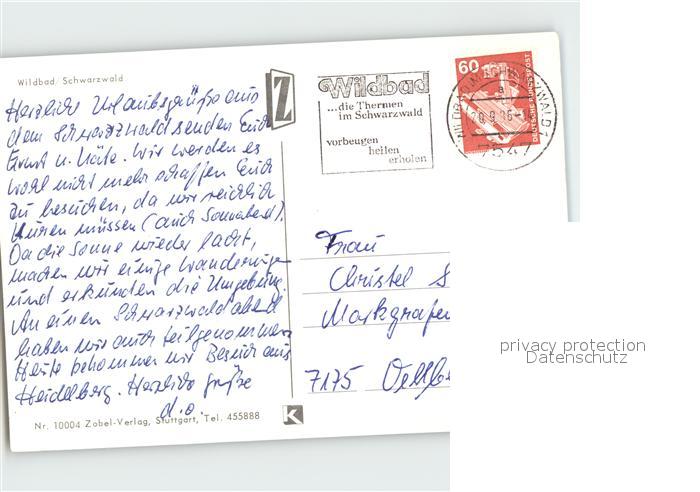 Wildbad/Schwarzwald
Herzliche Urlaubsgrüße aus
dem Schwarzwald senden Euch
Ernst u. Käte. Wir werden es
wohl nicht mehr schaffen Euch
zu besuchen, da wir reichlich
kuren müssen (auch Sonnabend).
Da die Sonne wieder lacht,
machen wir einige Wanderungen
und erkunden die Umgebung.
An einen Schwarzwaldabend
haben wir auch teilgenommen
Heute bekommen wir Besuch aus
Heidelberg. Herzliche Grüße
d.o.
Nr. 10004 Zobel-Verlag, Stuttgart, Tel. 455888
Z
K
Wildbad
...die Thermen
im Schwarzwald
vorbeugen
heilen
erholen
60
DEUTSCHE BUNDESPOST
7547
Frau
Christel S
Markgrafen
7175
privacy protection
Datenschutz